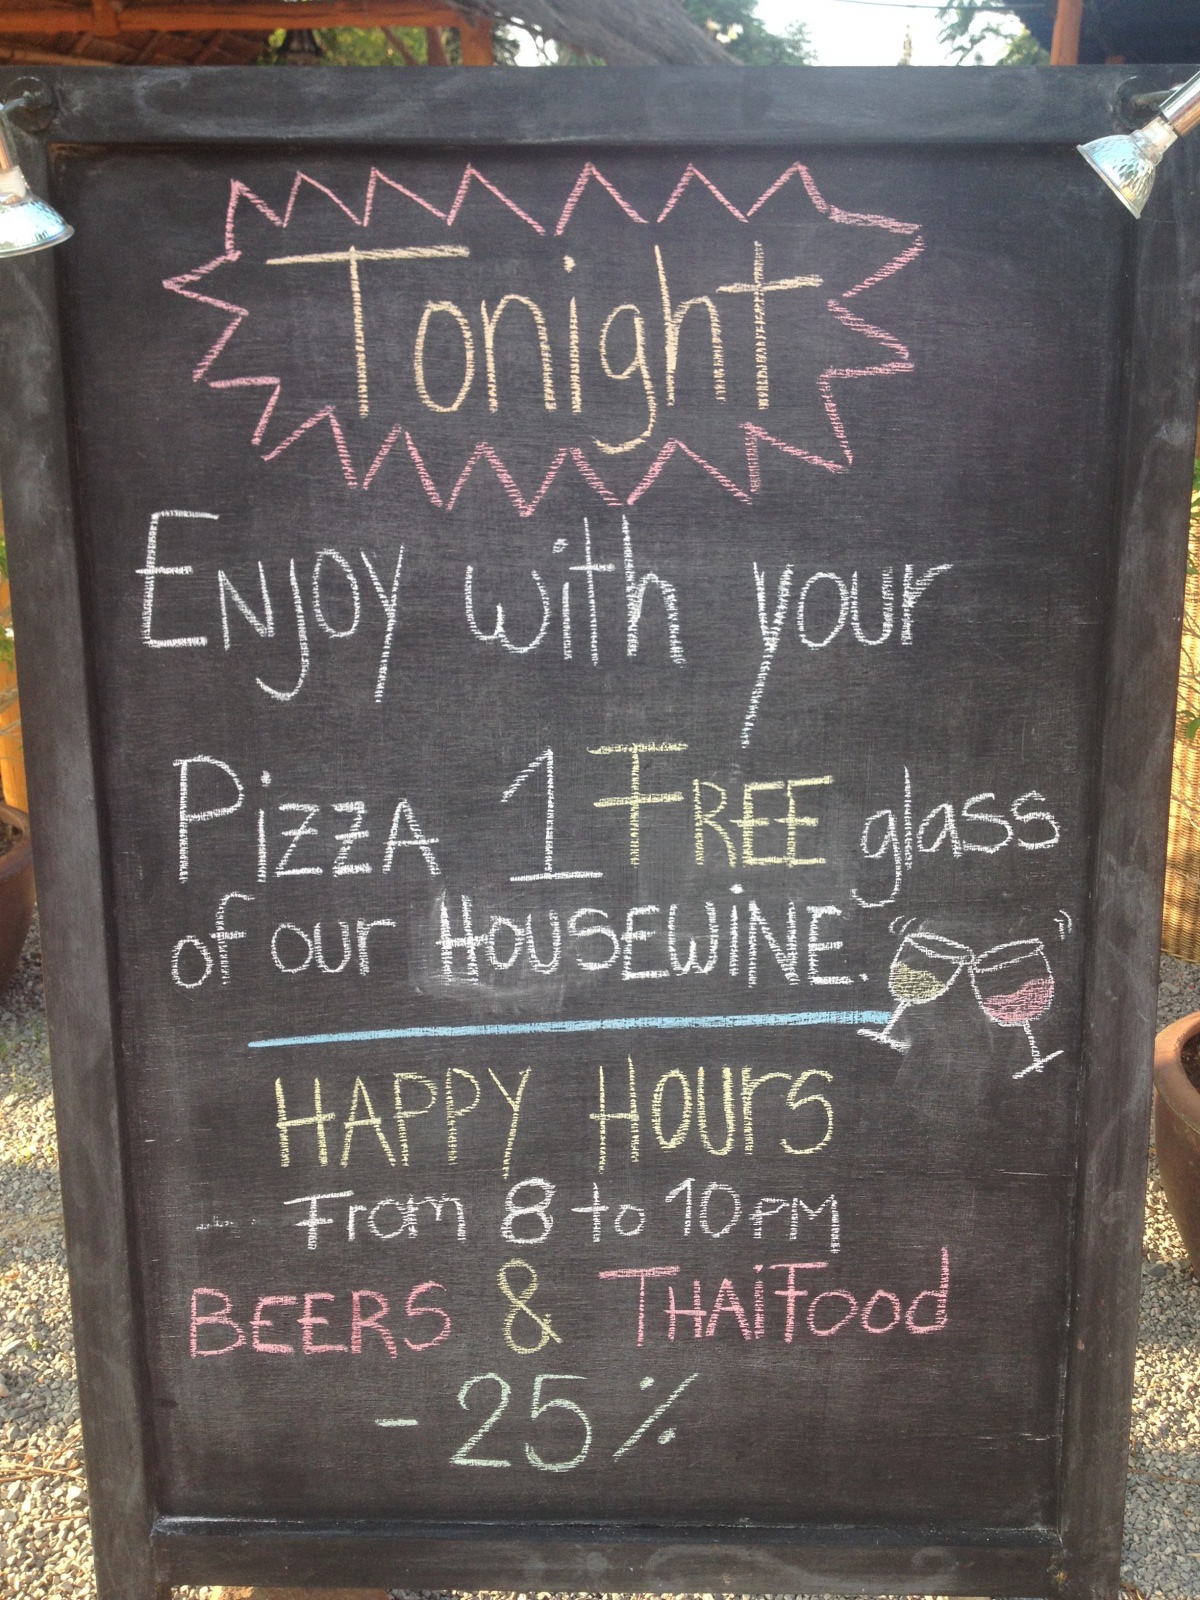 Tonight
Enjoy with your
Pizza 1 FREE glass
of our HOUSEWINE.
HAPPY HOURS
From 8 to 10 PM
BEERS & THAIFood
-25%